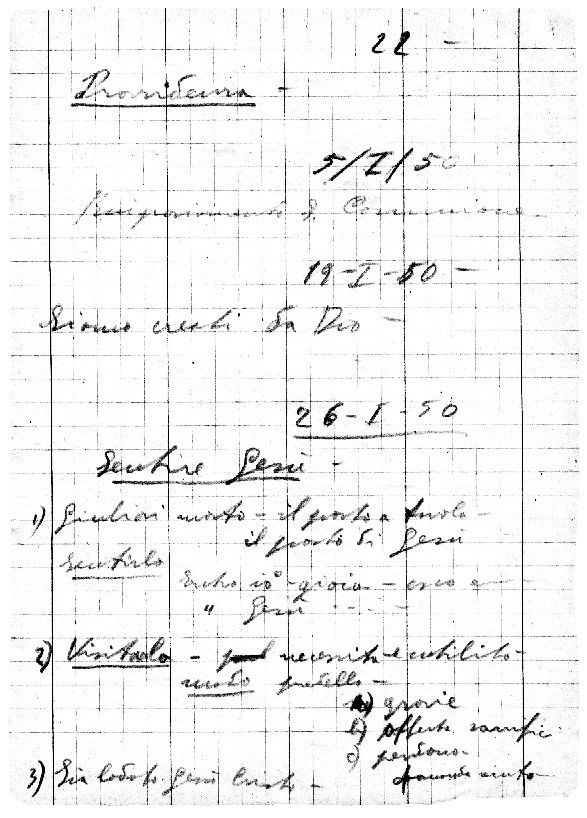 22 -
Provvidenza -
5/I/50
Comunione -
19-I-50 -
Siamo creati da Dio -
26-I-50
Sentire Gesù -
1) invito - il posto a tavola -
il posto di Gesù
Sentirlo
Entro io - gioia - esco
" Gesù
2) Visitarlo - necessità e utilità -
modo -
a) grazie
b) offerte sacrifici
c) perdono -
aiuto
3) Sia lodato Gesù Cristo -